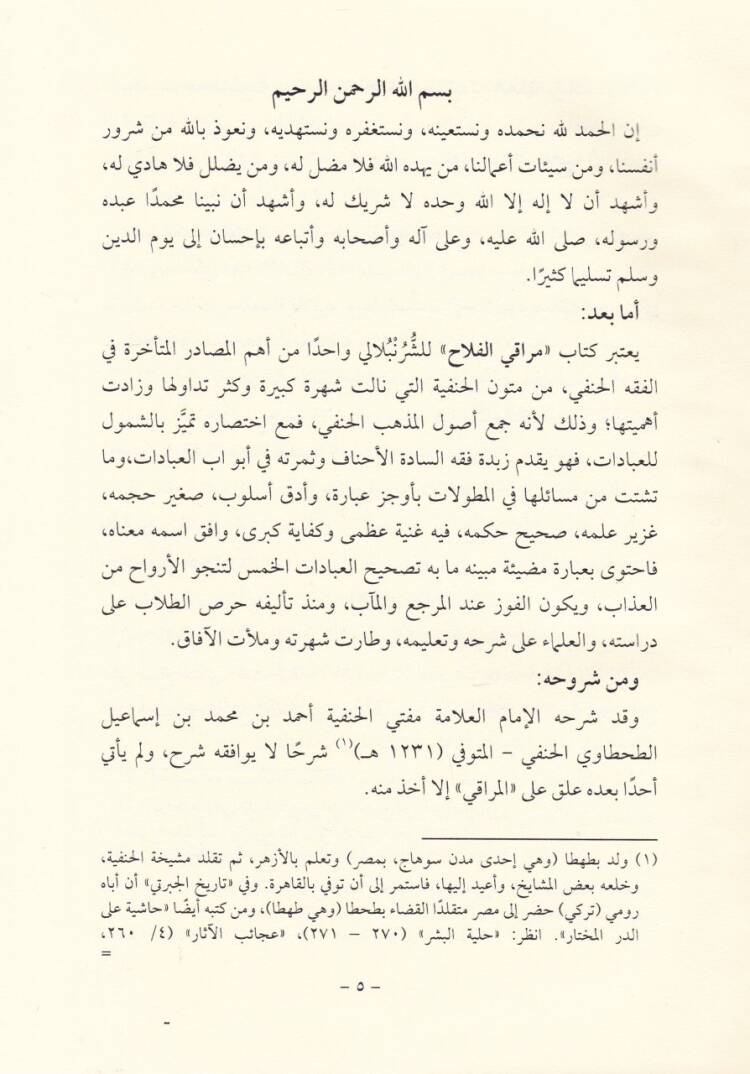 بسم الله الرحمن الرحيم
إن الحمد لله نحمده ونستعينه، ونستغفره ونستهديه، ونعوذ بالله من شرور
أنفسنا، ومن سيئات أعمالنا، من يهده الله فلا مضل له، ومن يضلل فلا هادي له،
وأشهد أن لا إله إلا الله وحده لا شريك له، وأشهد أن نبينا محمدًا عبده
ورسوله، صلى الله عليه، وعلى آله وأصحابه وأتباعه بإحسان إلى يوم الدين
وسلم تسليما كثيرًا.
أما بعد:
يعتبر كتاب «مراقي الفلاح» للشُّرُنْبُلالي واحدًا من أهم المصادر المتأخرة في
الفقه الحنفي، من متون الحنفية التي نالت شهرة كبيرة وكثر تداولها وزادت
أهميتها؛ وذلك لأنه جمع أصول المذهب الحنفي، فمع اختصاره تميَّز بالشمول
للعبادات، فهو يقدم زبدة فقه السادة الأحناف وثمرته في أبو اب العبادات،وما
تشتت من مسائلها في المطولات بأوجز عبارة، وأدق أسلوب، صغير حجمه،
غزير علمه، صحيح حكمه، فيه غنية عظمى وكفاية كبرى، وافق اسمه معناه،
فاحتوى بعبارة مضيئة مبينه ما به تصحيح العبادات الخمس لتنجو الأرواح من
العذاب، ويكون الفوز عند المرجع والمآب، ومنذ تأليفه حرص الطلاب على
دراسته، والعلماء على شرحه وتعليمه، وطارت شهرته وملأت الآفاق.
ومن شروحه:
وقد شرحه الإمام العلامة مفتي الحنفية أحمد بن محمد بن إسماعيل
الطحطاوي الحنفي – المتوفي (١٢٣١ هـ)(١) شرحًا لا يوافقه شرح، ولم يأتي
أحدًا بعده علق على «المراقي» إلا أخذ منه.
(١) ولد بطهطا (وهي إحدى مدن سوهاج، بمصر) وتعلم بالأزهر، ثم تقلد مشيخة الحنفية،
وخلعه بعض المشايخ، وأعيد إليها، فاستمر إلى أن توفي بالقاهرة. وفي «تاريخ الجبرتي» أن أباه
رومي (تركي) حضر إلى مصر متقلدًا القضاء بطحطا (وهي طهطا)، ومن كتبه أيضًا «حاشية على
الدر المختار». انظر: «حلية البشر» (٢٧٠ – ٢٧١)، «عجائب الآثار» (٤/ ٢٦٠،
=
– ٥ –